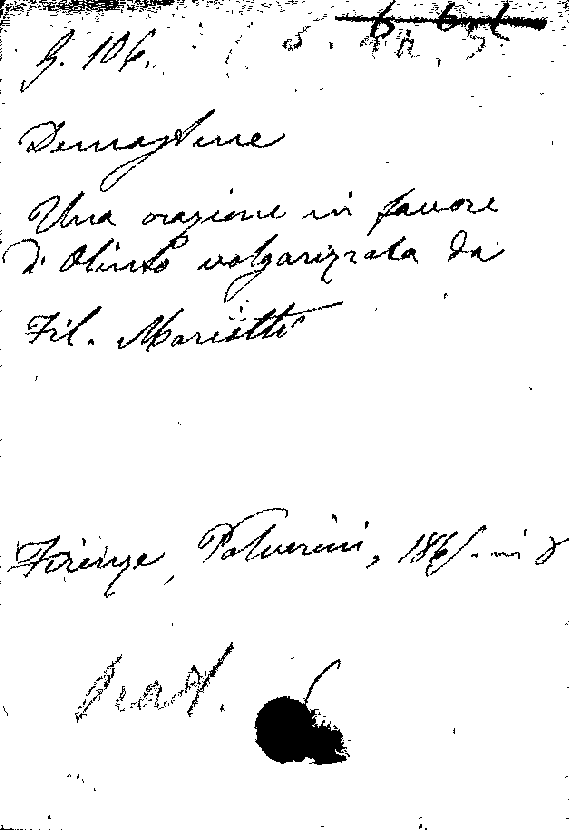 G. 106.
Demostene
Una orazione in favore
d'Olinto volgarizzata da
Fil. Mariotti
Firenze, Polverini, 186 in 8